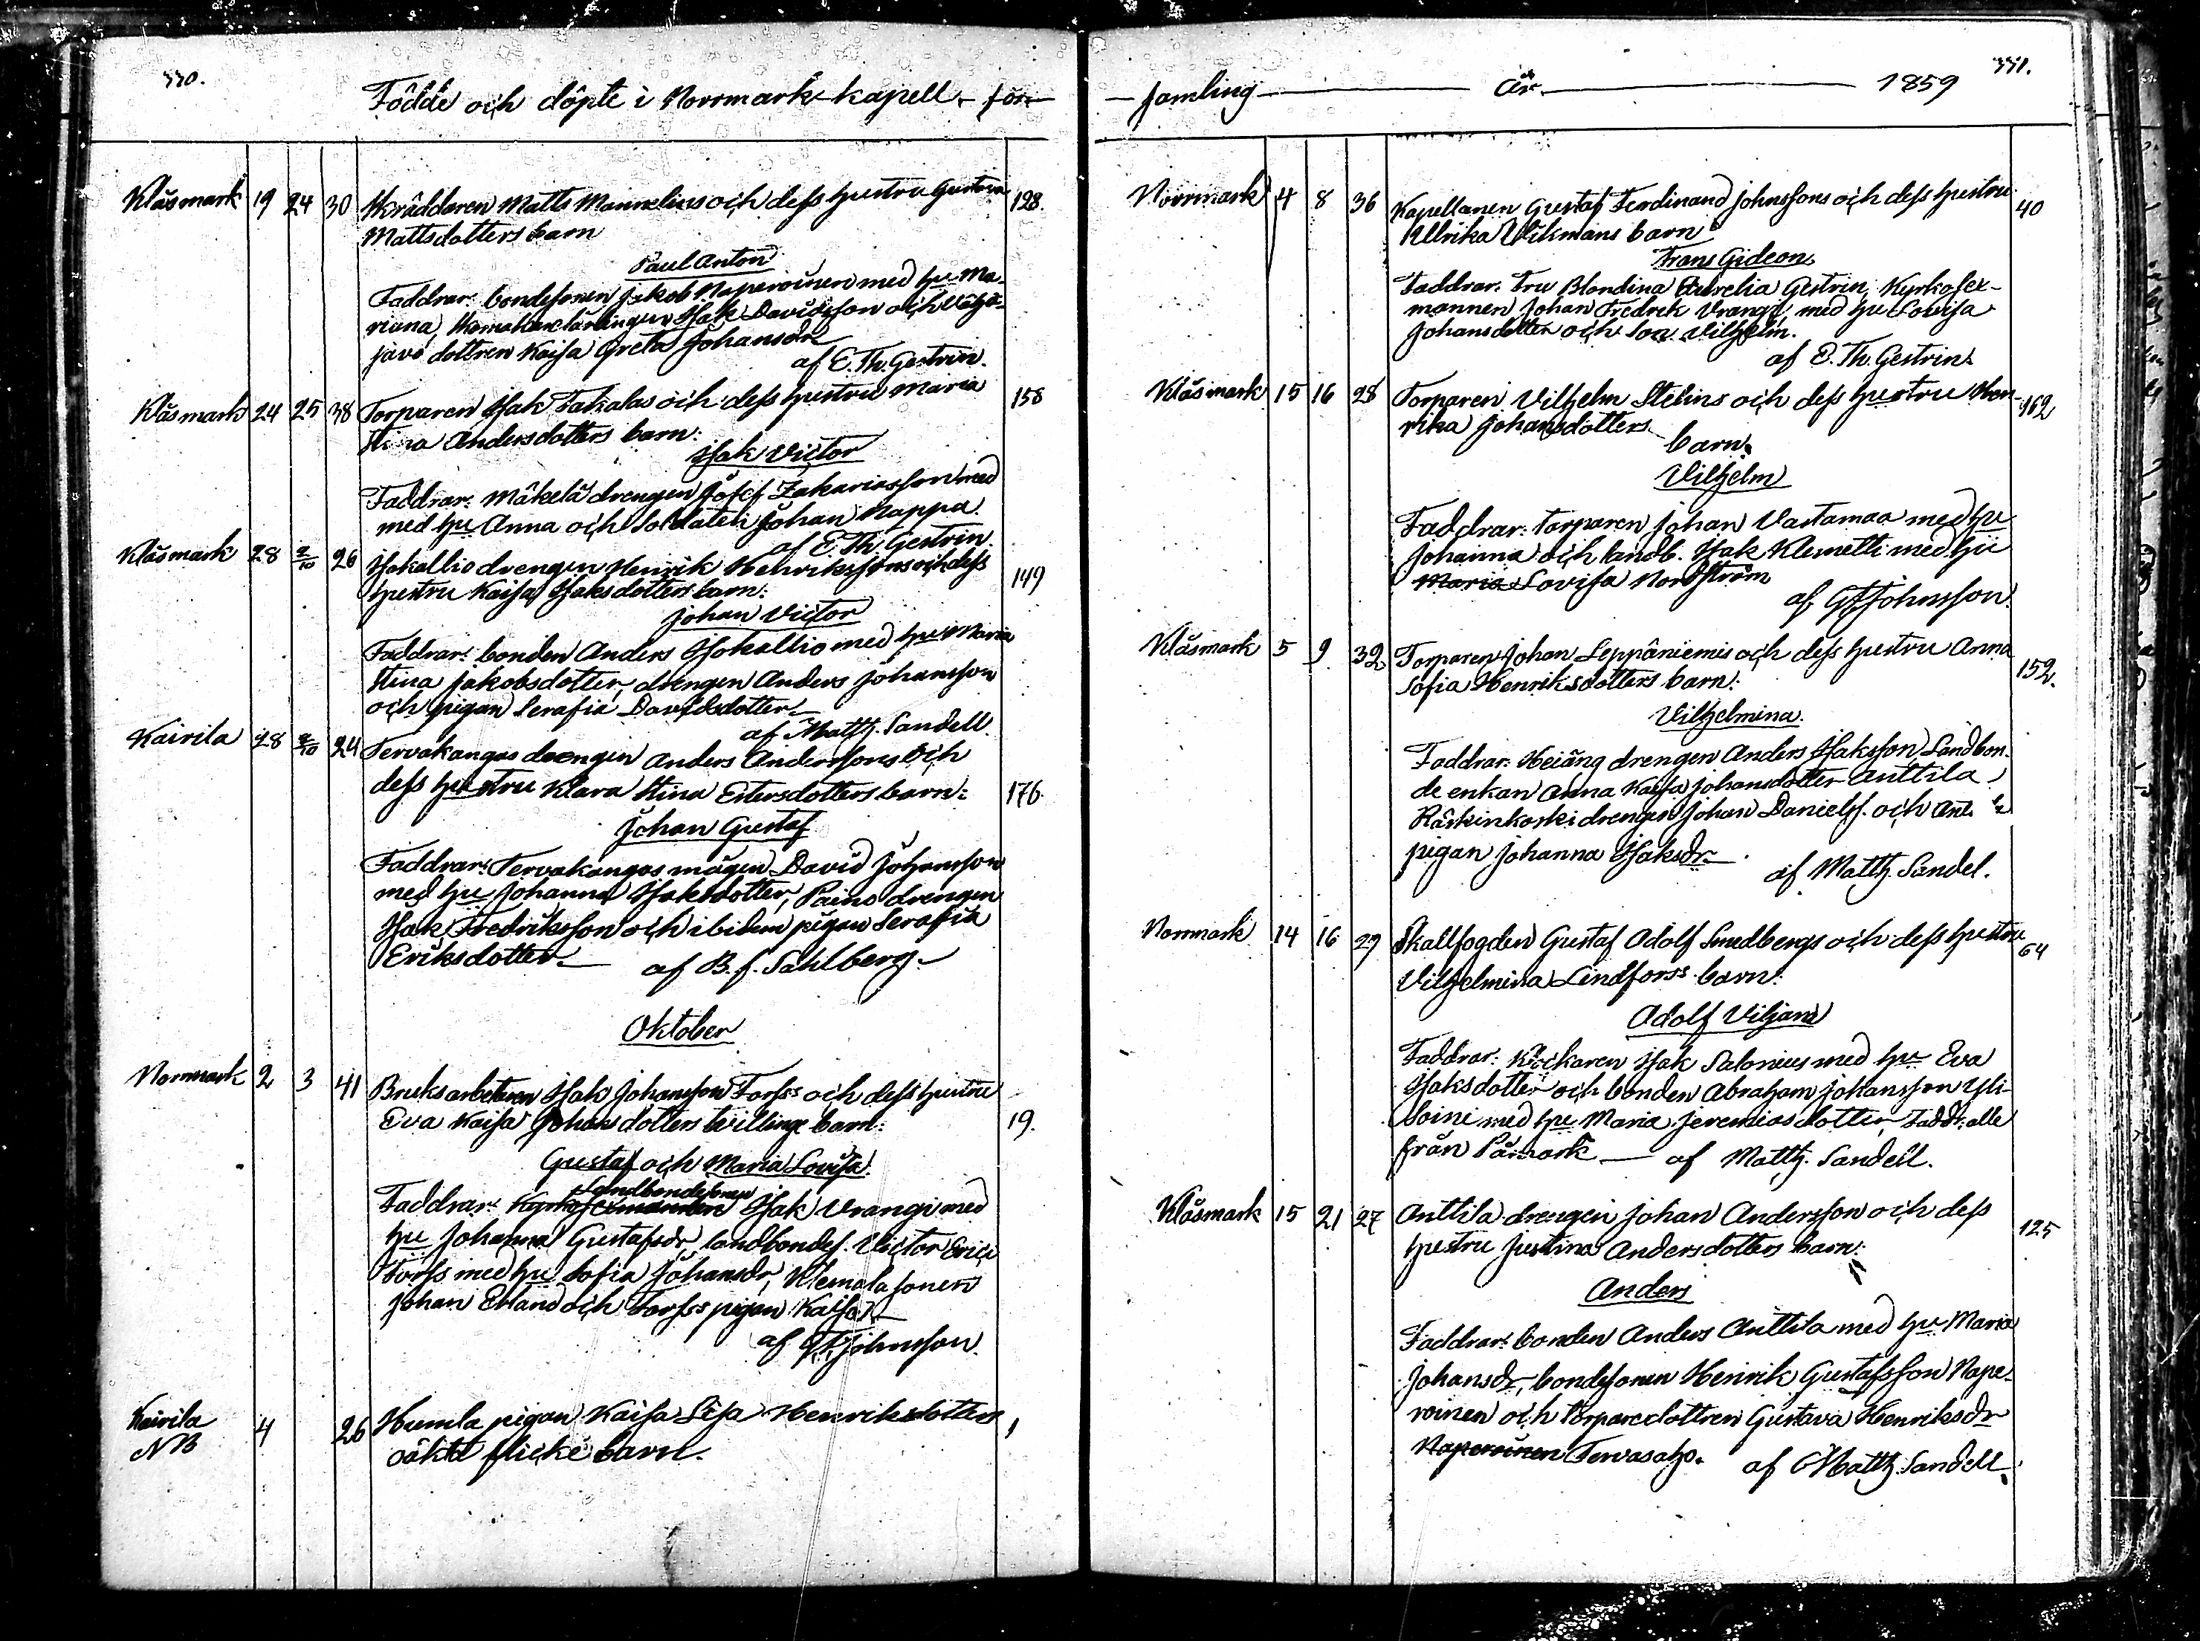 330.
Födde och döpte i Norrmark kapell för-
Klåsmark 19 24 30 Skräddaren Matts Mannelius och dess hustru Gustava 128.
Mattsdotters barn
Paul Anton
Faddrar: bondesonen Jakob Naperoinen med hu Ma-
riana, Isak Davidsson och
dottren Kaisa Greta Johansdr
af E. Th. Gestrin.
Klåsmark 24 25 38 Torparen Isak Takalas och dess hustru Maria 158
Stina Andersdotters barn:
Isak Victor
Faddrar: Mäkelä drengen Josef Zakariasson med
med hu Anna och Soldaten Johan Nappa.
af E. Th. Gestrin.
Klåsmark 28 2/10 26 Isokallio drengen Henrik Henrikssons och dess 149
hustru Kaisa Isaksdotters barn:
Johan Victor
Faddrar: bonden Anders Isokallio med hu Maria
Stina Jakobsdotter, drengen Anders Johansson
och pigan Serafia Davidsdotter
af Matth. Sandell.
Kairila 28 2/10 24 Tervakangas drengen Anders Anderssons och
dess hustru Klara Stina Estersdotters barn: 176.
Johan Gustaf
Faddrar: Tervakangas mågen David Johansson
med hu Johanna Isaksdotter, Paino drengen
Isak Fredriksson och ibidem pigan Serafia
Eriksdotter. af B. f. Sahlberg.
Oktober
Norrmark 2 3 41 Bruksarbetaren Isak Johansson Forss och dess hustru
Eva Kaisa Johansdotters tvillinge barn: 19.
Gustaf och Maria Lovisa.
Landbondesonen
Faddrar: Isak Vrangi med
hu Johanna Gustafsdr, landbondes. Victor
Forss med hu Sofia Johansdr, Klemola sonen
Johan Erland och Forss pigan Kaisa
af GFJohnsson.
Kairila 4 26 Humla pigan Kaisa Lisa Henriksdotters
NB oäkta flicke barn.
331.
samling År 1859
Norrmark 4 8 36 Kapellanen Gustaf Ferdinand Johnssons och dess hustru 40
Ulrika Wikmans barn
Frans Gideon
Faddrar. Fru Blondina Aurelia Gestrin, Kyrkosex-
mannen Johan Fredrik Vrangi, med hu Lovisa
Johansdotter och Son Vilhelm.
af E. Th. Gestrin.
Klåsmark 15 16 28 Torparen Vilhelm Stelins och dess hustru Hen- 162
rika Johansdotters
barn.
Vilhelm
Faddrar: torparen Johan Vastamaa med hu
Johanna och landb. Isak Klemetti med hu
Maria Lovisa Nordström
af GFJohnsson.
Klåsmark 5 9 32 Torparen Johan Leppäniemis och dess hustru Anna 152.
Sofia Henriksdotters barn:
Vilhelmina.
Faddrar: drengen Anders Isaksson, Landbon-
de enkan Anna Kaisa Johansdotter Anttila,
Räskinkoski drengen Johan Danielss. och
pigan Johanna Isaksdr
af Matth Sandel.
Norrmark 14 16 29 Skallfogden Gustaf Adolf Smedbergs och dess hustru 64
Vilhelmina Lindforss barn:
Adolf Viljam
Faddrar: Klockaren Isak Salonius med hu Eva
Isaksdotter och bonden Abraham Johansson Yli-
soini med hu Maria Jeremiasdotter, faddr. alle
från Påmark af Matth. Sandell.
Klåsmark 15 21 27 Anttila drengen Johan Andersson och dess 125
hustru Justina Andersdotters barn:
Anders
Faddrar: bonden Anders Anttila med hu Maria
Johansdr, bondesonen Henrik Gustafsson Nape-
roinen och torparedottren Gustava Henriksdr
Naperoinen Tervasaho. af Matth. Sandell.